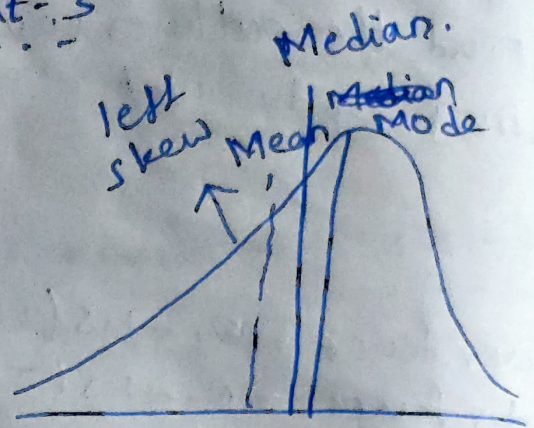 Median.
left
skew
Mean
Median
Mode